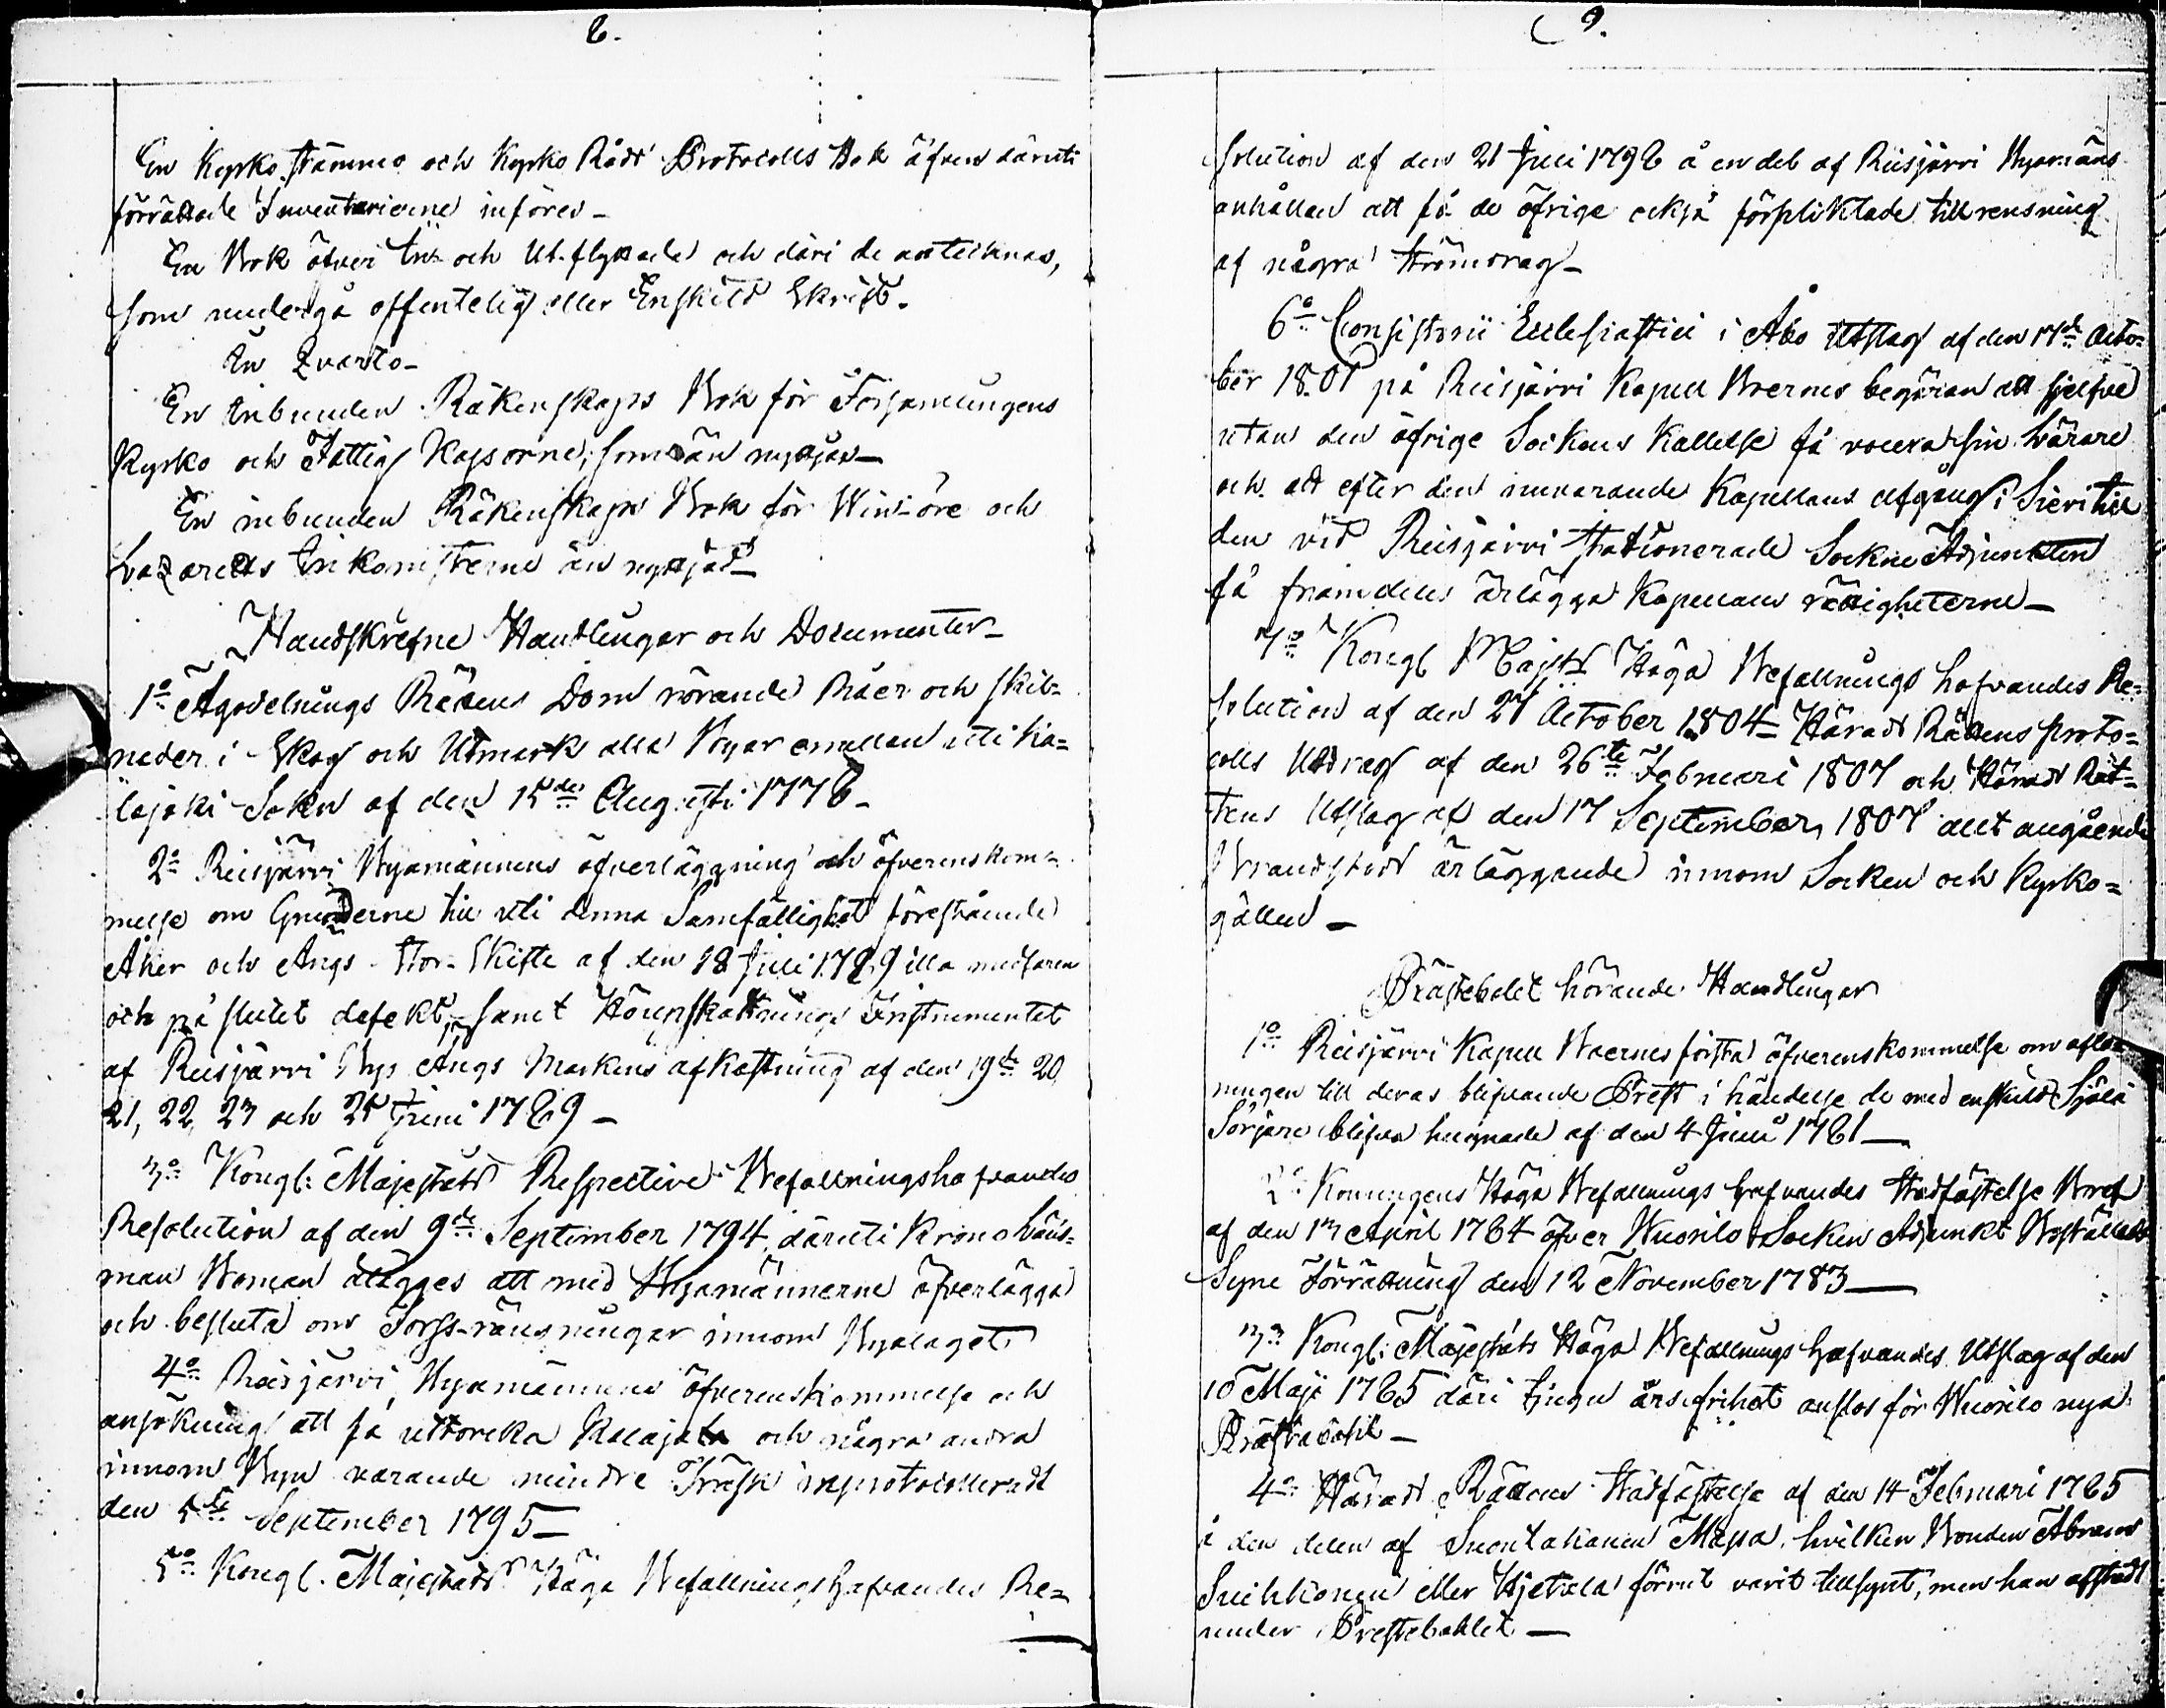 8.
En Kyrko stämmo och Kyrko Råds Protocolls Bok äfven däruti
förrättade Inventarierne införes_
En Bok öfver In- och Ut-flyttade och däri de antecknas,
som undergå offentelig eller Enskild Skrift.
In Qvarto_
En inbunden Räkenskaps Bok för Församlingens
Kyrko och Fattig Kassorne, som än nyttjas_
En inbunden Räkenskaps Bok för Vin-öre och
Lazaretts Inkomsterne än nyttjad_
Handskrefne Handlingar och Documenter_
1o Ägodelnings Rättens Dom rörande Råer och skil-
nader i Skog och Utmark alla Byar emellan uti Ka-
lajoki Sokn af den 15de Augusti 1778_
2o Reisjärvi Byamännens öfverläggning och öfverenskom-
melse om Grunderne till uti denna Samfällighet förestående
Åker och Ängs Stor-Skifte af den 18 Juli 1789 illa medfaren
och på slutet defekt, samt Höuppskattnings Instrumentet
af Reisjärvi Bys Ängs Markens afkastning af den 19de 20
21, 22, 23 och 25 Juni 1789_
3o Kongl: Majestäts Respective Befallningshafvandes
Resolution af den 9de September 1794, däruti Krono Läns-
man Boman ålägges att med Byamännerne öfverlägga
och besluta om Forss-ränsningar innom Byalaget
4o Reisjärvi Byamännens öfverenskommelse och
ansökning att få uttorcka Kalaja och några andra
innom Byn varande mindre Träsk inprotocolleradt
den 5te September 1795_
5o Kongl. Majestäts Höga Befallningshafvandes Re-
9.
solution af den 21 Juli 1798 å en del af Reisjärvi Byamäns
anhållan att få de öfrige också förpliktade till rensning
af några Strömdrag_
6o Consistorii Ecclesiastici i Åbo Utslag af den 17de Octo-
ber 1801 på Reisjärvi Kapell Boernes begäran att sjelfve
utan den öfrige Sockens Kallelse få vocera sin Lärare
och att efter den nuvarande Kapellans afgång i Sievi till
den vid Reisjärvi stationerade Sockne Adjunkten
få framdeles ärlägga Kapellans rättigheterne_
7o Kongl Majsts Höga Befallnings hafvandes Re-
solution af den 27 October 1804_ Härads Rättens proto-
colls Utdrag af den 26te Februari 1807 och Härads Rät-
tens Utslag af den 17 September, 1807 allt angående
Brandstod ärläggande innom Socken och Kyrko-
gällen_
Prästebolet hörande Handlingar
1o Reisjärvi Kapell Boernes första öfverenskommelse om aflö-
ningen till deras blifvande Prest i händelse de med enskild Själa
Sörjare blifva hugnade af den 4 Juni 1761_
2o Konungens Höga Befallnings hafvandes Stadfästelse Bref
af den 13 April 1764 öfver Wuorilo Socken Adjunkt Boställets
Syne Förrättning den 12 November 1783_
3o Kongl: Majestäts Höga Befallnings hafvandes Utslag af den
10 Maji 1765 däri tjugu års frihet anslos för Wuorilo nya
Prästaböhle_
4o Härads Rättens Stadfästelse af den 14 Februari 1765
å den delen af Suontakanen Massa, hvilken Bonden Abram
Suikkonen eller Kjetala förrut varit tillsynt, men han afstådt
under Prestebohlet_